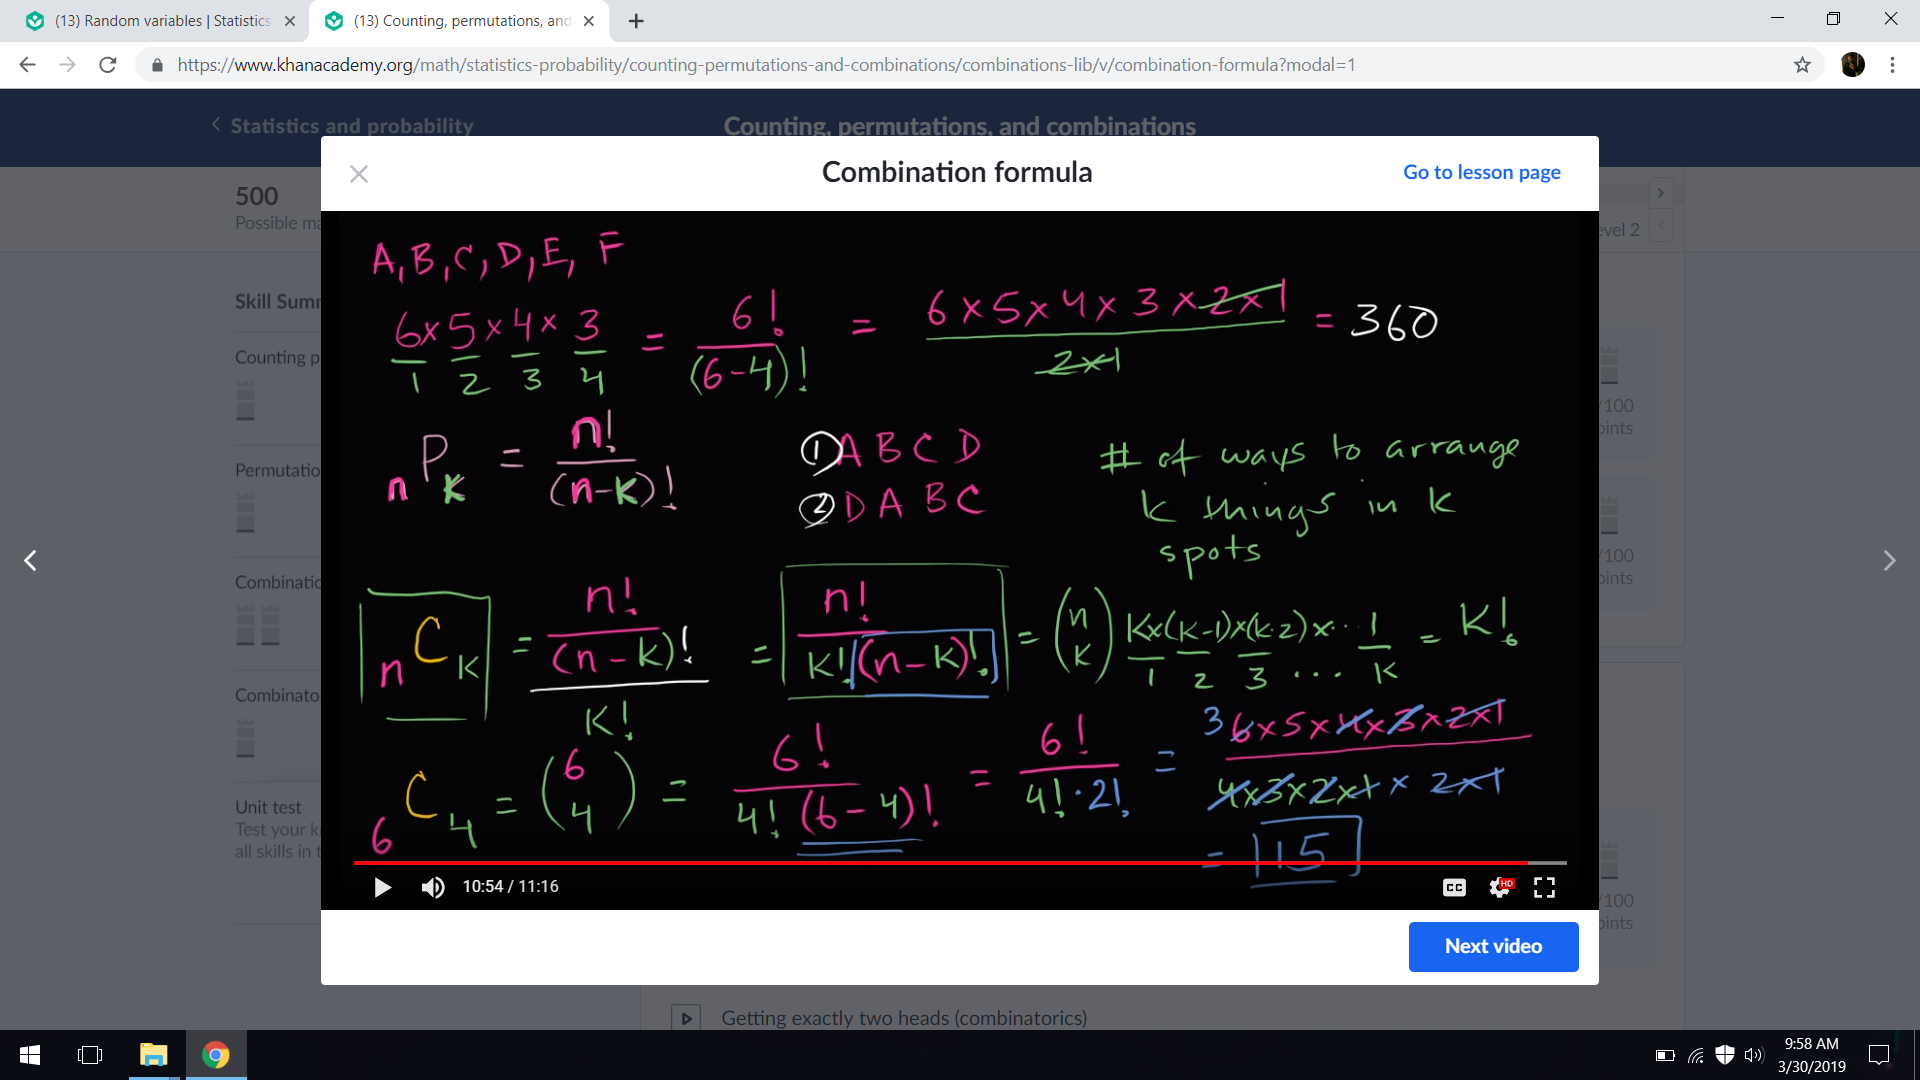 (13) Random variables | Statistics
(13) Counting, permutations, and
https://www.khanacademy.org/math/statistics-probability/counting-permutations-and-combinations/combinations-lib/v/combination-formula?modal=1
Statistics and probability
Counting, permutations, and combinations
Combination formula
Go to lesson page
500
Possible ma
evel 2
Skill Summ
Counting p
Permutatio
Combinatio
Combinato
Unit test
Test your k
all skills in t
/100
oints
/100
oints
/100
oints
A, B, C, D, E, F
6 × 5 × 4 × 3 = 6! / (6-4)! = 6 × 5 × 4 × 3 × 2 × 1 / 2×1 = 360
1 2 3 4
nPk = n! / (n-k)!
① A B C D
② D A B C
# of ways to arrange
k things in k
spots
nCk = n! / (n-k)! / k! = n! / k!(n-k)! = (n k)
k×(k-1)×(k-2)×... 1 = k!
1 2 3 ... k
6C4 = (6 4) = 6! / 4!(6-4)! = 6! / 4!·2! = 3 6×5×4×3×2×1 / 4×3×2×1 × 2×1
= 15
10:54 / 11:16
CC
HD
Next video
Getting exactly two heads (combinatorics)
9:58 AM
3/30/2019